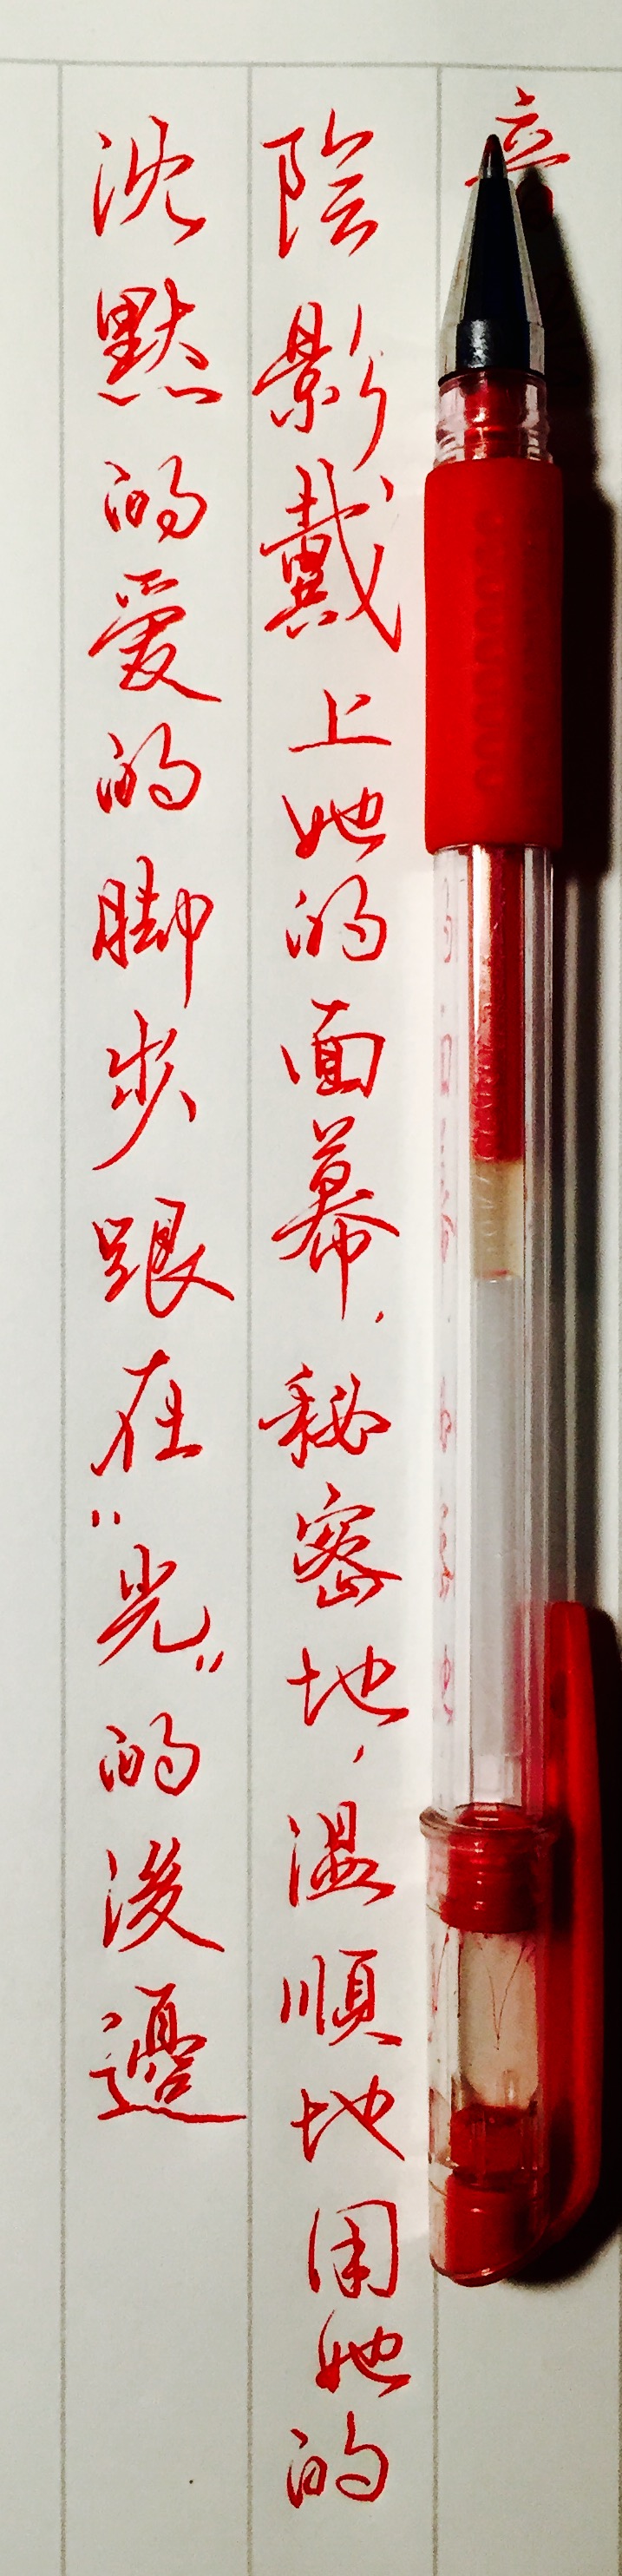 陰影戴上她的面幕,秘密地,温順地用她的
沈默的爱的脚步跟在“光”的後邊